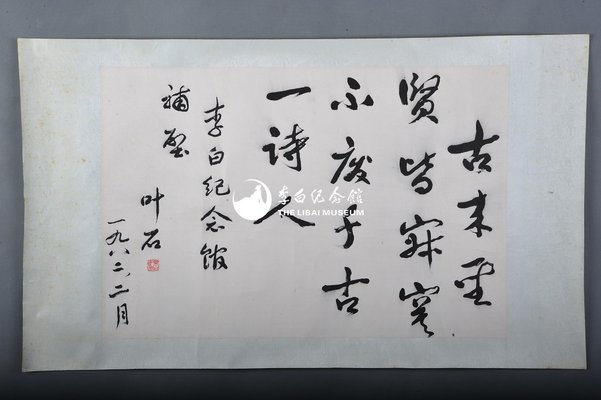 古来圣
贤皆寂寞
不废千古
一诗人
李白纪念馆
補壁
叶石
一九八二、二月
李白纪念馆
THE LIBAI MUSEUM